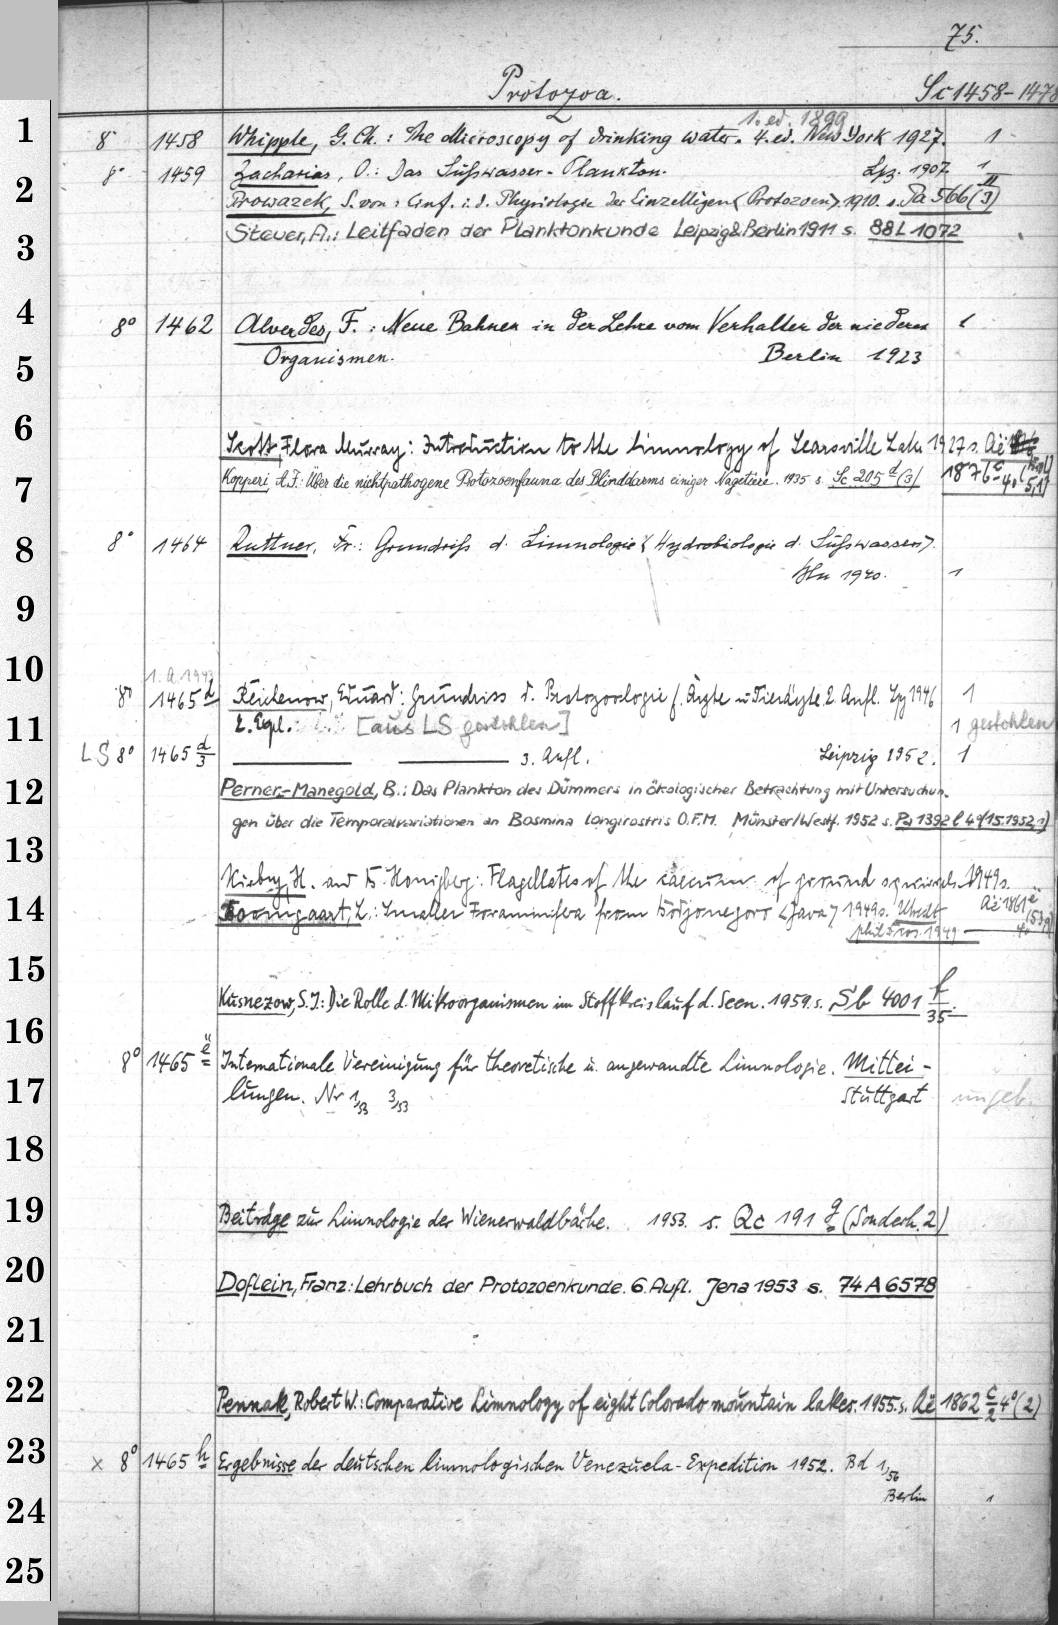 75.
Protozoa. Sc 1458-1478
1. ed. 1899
1 8° 1458 Whipple, G. Ch.: The Microscopy of drinking water. 4. ed. New York 1927. 1
2 8° 1459 Zacharias, O.: Das Süßwasser-Plankton. Lpz. 1907 1
Prowazek, S. von: Einf. i. d. Physiologie der Einzelligen <Protozoen> 1910. s. Pa 566 (II/3)
3 Steuer, A.: Leitfaden der Planktonkunde Leipzig & Berlin 1911 s. 88 L 1072
4 8° 1462 Alverdes, F.: Neue Bahnen in der Lehre vom Verhalten der niederen 1
5 Organismen. Berlin 1923
6 Scott, Flora Murray: Introduction to the Limnology of Searsville Lake 1927 s. Aë
7 Kopperi, A.J.: Über die nichtpathogene Protozoenfauna des Blinddarms einiger Nagetiere. 1935 s. Sc 205 d (3) 1876 c 4° (5,1)
8 8° 1464 Ruttner, Fr.: Grundriß d. Limnologie <Hydrobiologie d. Süßwassers>.
Bln 1940. 1
9
10 1. A. 1949
8° 1465 d Reichenow, Eduard: Grundriss d. Protozoologie f. Ärzte u. Tierärzte. 2. Aufl. Lpz 1946 1
11 2. Expl. [aus LS gestohlen] 1 gestohlen
LS 8° 1465 d/3 — — 3. Aufl. Leipzig 1952. 1
12 Perner-Manegold, B.: Das Plankton des Dümmers in ökologischer Betrachtung mit Untersuchun-
gen über die Temporalvariationen an Bosmina longirostris O.F.M. Münster/Westf. 1952 s. Pa 1392 l 4° (15.1952,1)
13 Kirby, H. and B. Honigberg: Flagellates of the caecum of ground squirrels. 1949 s.
14 Boomgaart, L.: Smaller Foraminifera from Bodjonegoro <Java> 1949 s. Utrecht Aë 1861 e
phil. Diss. 1949 4° (53,
15 Kusnezow, S.I.: Die Rolle d. Mikroorganismen im Stoffkreislauf d. Seen. 1959. s. Sb 4001 f/35.
16 8° 1465 ë Internationale Vereinigung für theoretische u. angewandte Limnologie. Mittei-
17 lungen. Nr 1/53 3/53 Stuttgart ungeb.
18
19 Beiträge zur Limnologie der Wienerwaldbäche. 1953. s. Qc 191 g (Sonderh. 2)
20 Doflein, Franz: Lehrbuch der Protozoenkunde. 6. Aufl. Jena 1953 s. 74 A 6578
21
22 Pennak, Robert W.: Comparative Limnology of eight Colorado mountain lakes. 1955. s. Aë 1862 c/2 4° (2)
23 x 8° 1465 h Ergebnisse der deutschen limnologischen Venezuela-Expedition 1952. Bd 1/56
24 Berlin 1
25